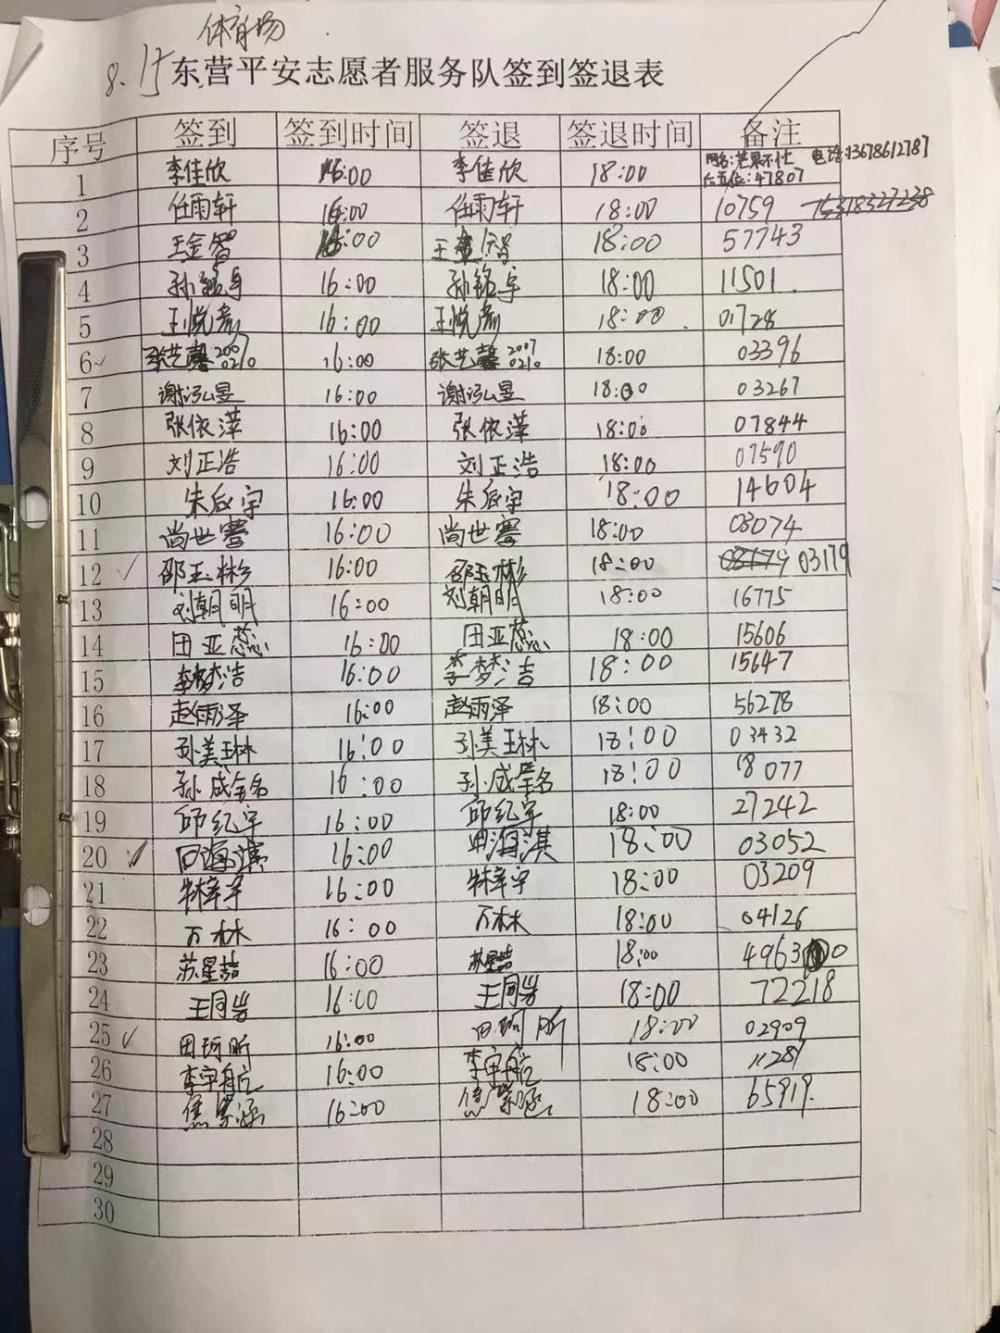 体育场
8.15 东营平安志愿者服务队签到签退表
序号 签到 签到时间 签退 签退时间 备注
1 李佳欣 16:00 李佳欣 18:00 网名:芒果不忙 电话:13678612787
台直位:47807
2 任雨轩 16:00 任雨轩 18:00 10759 15318327238
3 王金智 16:00 王金智 18:00 57743
4 孙铭宇 16:00 孙铭宇 18:00 11501
5 王悦彪 16:00 王悦彪 18:00 01728
6 张艺馨 20070210 16:00 张艺馨 20070210 18:00 03396
7 谢泓昱 16:00 谢泓昱 18:00 03267
8 张依萍 16:00 张依萍 18:00 07844
9 刘正浩 16:00 刘正浩 18:00 07590
10 朱启宇 16:00 朱启宇 18:00 14604
11 尚世騫 16:00 尚世騫 18:00 08074
12 邵玉彬 16:00 邵玉彬 18:00 03179 03179
13 刘朝明 16:00 刘朝明 18:00 16775
14 田亚蕊 16:00 田亚蕊 18:00 15606
15 李梦洁 16:00 李梦洁 18:00 15647
16 赵雨泽 16:00 赵雨泽 18:00 56278
17 孙美琳 16:00 孙美琳 18:00 03432
18 孙成铭 16:00 孙成铭 18:00 18077
19 邱纪宇 16:00 邱纪宇 18:00 27242
20 田海淇 16:00 田海淇 18:00 03052
21 林宇 16:00 林宇 18:00 03209
22 万林 16:00 万林 18:00 04126
23 苏星喆 16:00 苏星喆 18:00 4963 0
24 王同岩 16:00 王同岩 18:00 72218
25 田珂昕 16:00 田珂昕 18:00 02909
26 李宇航 16:00 李宇航 18:00 11281
27 焦紫涵 16:00 焦紫涵 18:00 65919.
28
29
30